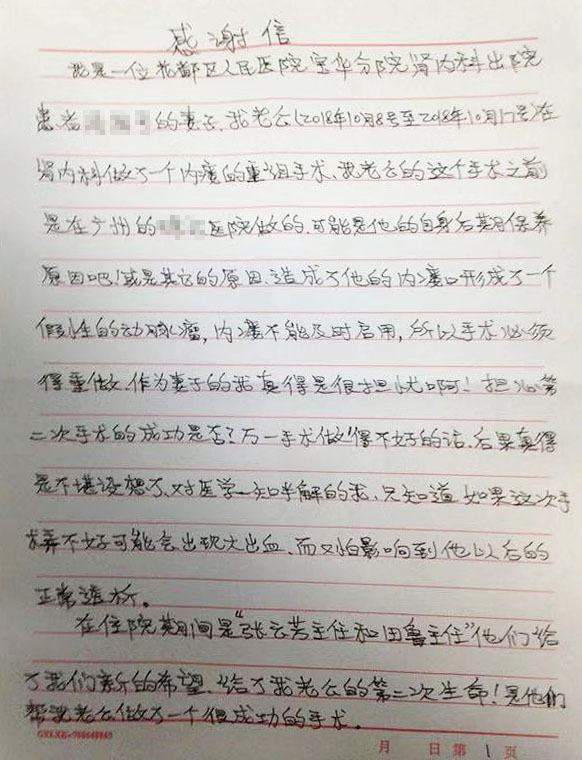 感谢信
我是一位花都区人民医院宝华分院肾内科出院
患者的妻子.我老公(2018年10月8号至2018年10月17号)在
肾内科做了一个内瘘的重组手术.我老公的这个手术之前
是在广州的医院做的.可能是他的自身后期保养
原因吧!或是其它的原因.造成了他的内瘘口形成了一个
假性的动脉瘤,内瘘不能及时启用,所以手术必须
得重做.作为妻子的我真得是很担忧啊!担心第
二次手术的成功是否?万一手术做得不好的话.后果真得
是不堪设想了.对医学一知半解的我.只知道如果这次手
术弄不好可能会出现大出血.而又怕影响到他以后的
正常透析。
在住院期间是"张云芳主任和田鲁主任"他们给
了我们新的希望.给了我老公的第二次生命!是他们
帮我老公做了一个很成功的手术.
月 日第 1 页